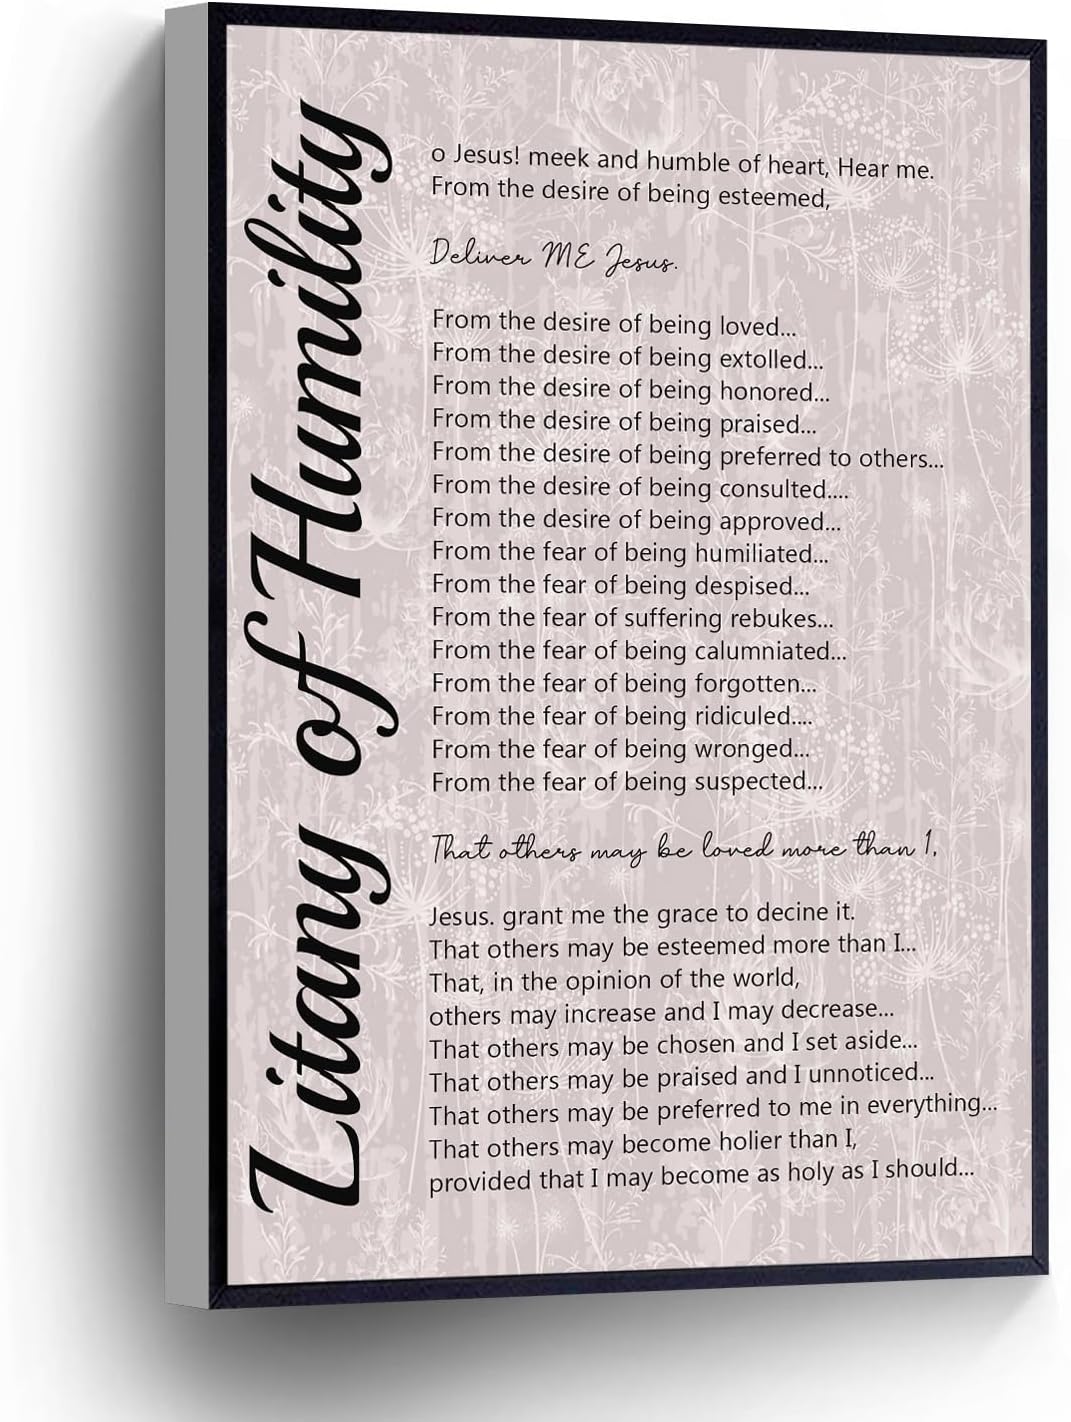 Litany of Humility
o Jesus! meek and humble of heart, Hear me.
From the desire of being esteemed,
Deliver ME Jesus.
From the desire of being loved...
From the desire of being extolled...
From the desire of being honored...
From the desire of being praised...
From the desire of being preferred to others...
From the desire of being consulted....
From the desire of being approved...
From the fear of being humiliated...
From the fear of being despised...
From the fear of suffering rebukes...
From the fear of being calumniated...
From the fear of being forgotten...
From the fear of being ridiculed....
From the fear of being wronged...
From the fear of being suspected...
That others may be loved more than 1,
Jesus. grant me the grace to decine it.
That others may be esteemed more than I...
That, in the opinion of the world,
others may increase and I may decrease...
That others may be chosen and I set aside...
That others may be praised and I unnoticed...
That others may be preferred to me in everything...
That others may become holier than I,
provided that I may become as holy as I should...